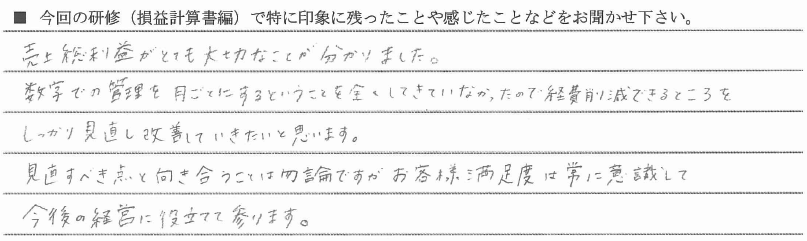 ■ 今回の研修（損益計算書編）で特に印象に残ったことや感じたことなどをお聞かせ下さい。
売上総利益がとても大切なことが分かりました。
数字での管理を月ごとにするということを全くしてきていなかったので経費削減できるところを
しっかり見直し改善していきたいと思います。
見直すべき点と向き合うことは勿論ですがお客様満足度は常に意識して
今後の経営に役立てて参ります。